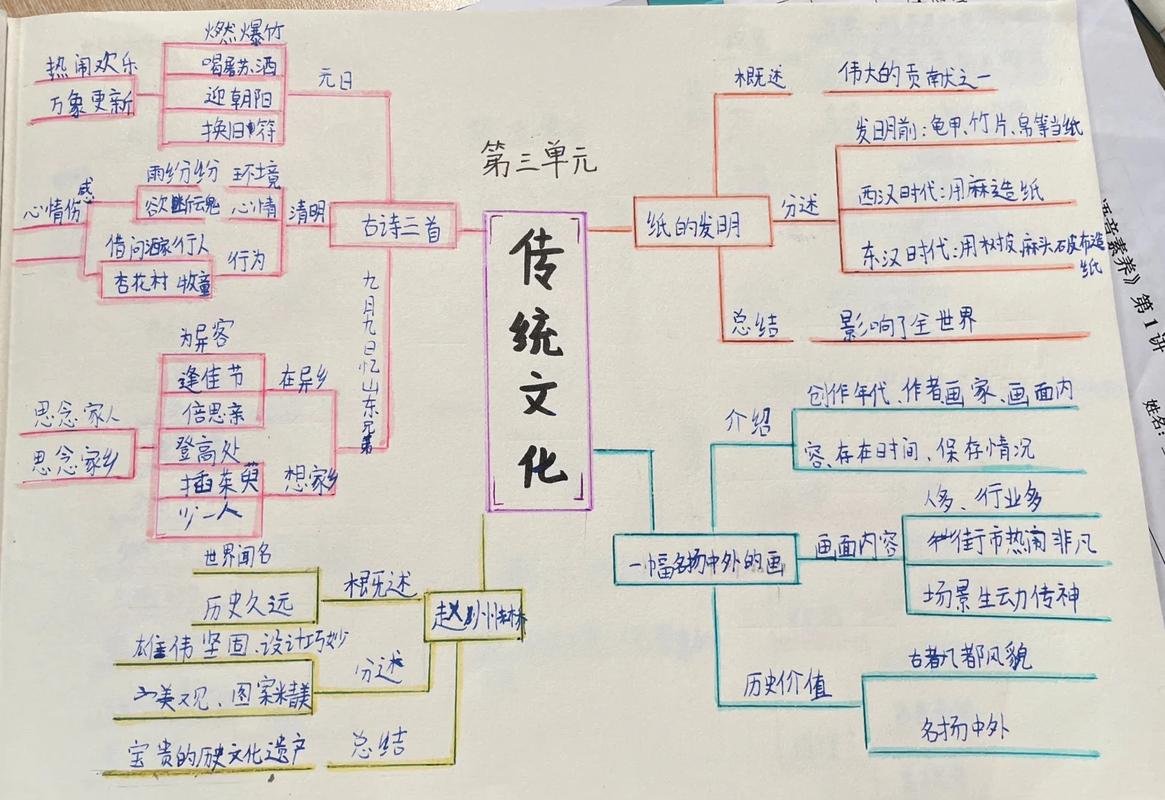 第三单元
传统文化
古诗三首
元日
燃爆竹
喝屠苏酒
迎朝阳
换旧符
热闹欢乐
万象更新
清明
雨纷纷 环境
欲断魂 心情
借问酒家行人
杏花村 牧童
行为
心情伤感
九月九日忆山东兄弟
为异客
逢佳节
倍思亲
在异乡
登高处
插茱萸
少一人
想家乡
思念家人
思念家乡
赵州桥
概述
世界闻名
历史久远
分述
雄伟坚固、设计巧妙
美观、图案精美
总结
宝贵的历史文化遗产
纸的发明
概述
伟大的贡献之一
分述
发明前:龟甲、竹片、帛等当纸
西汉时代:用麻造纸
东汉时代:用树皮、麻头石皮布造纸
总结
影响了全世界
一幅名扬中外的画
介绍
创作年代、作者画家、画面内
容、存在时间、保存情况
画面内容
人多、行业多
街市热闹非凡
场景生动传神
历史价值
古都风貌
名扬中外
语音素养》第1讲
姓名: